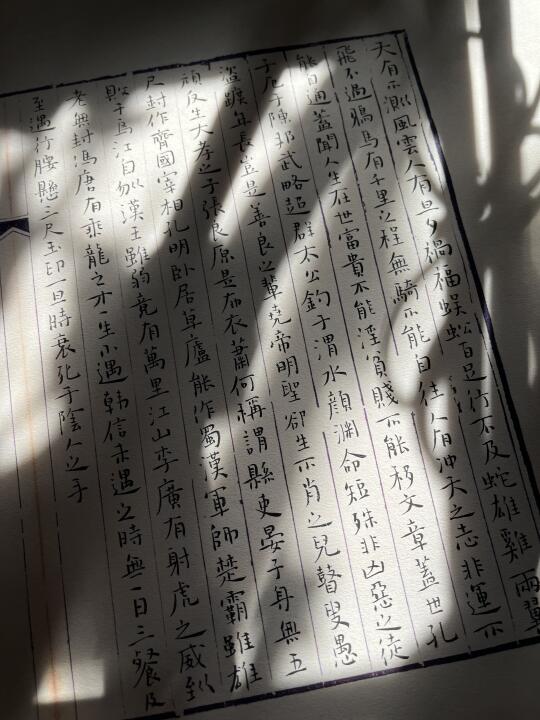 天有不測風雲人有旦夕禍福蜈蚣百足行不及蛇雄雞兩翼
飛不過鴉馬有千里之程無騎不能自往人有冲天之志非運不
能自通蓋聞人生在世富貴不能淫貧賤不能移文章蓋世孔
子厄于陳邦武略超群太公釣于渭水顔淵命短殊非凶惡之徒
盜蹠年長豈是善良之輩堯帝明聖卻生不肖之兒瞽叟愚
頑反生大孝之子張良原是布衣蕭何稱謂縣吏晏子身無五
尺封作齊國宰相孔明卧居草廬能作蜀漢軍師楚霸雖雄
敗于烏江自刎漢王雖弱竟有萬里江山李廣有射虎之威到
老無封馮唐有乘龍之才一生不遇韓信未遇之時無一日三餐及
至遇行腰懸三尺玉印一旦時衰死于陰人之手